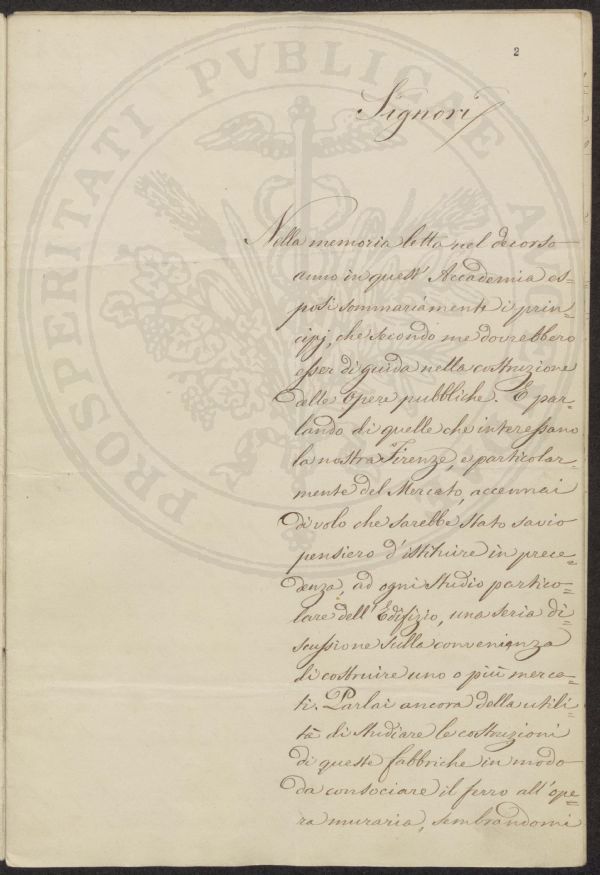 2
Signori
Nella memoria letta nel decorso
anno in quest' Accademia es=
posi sommariamente i prin=
cipj, che secondo me dovrebbero
esser di guida nella costruzione
delle Opere pubbliche. E par=
lando di quelle che interessano
la nostra Firenze, e particolar=
mente del Mercato, accennai
di volo che sarebbe stato savio
pensiero d'istituire in prece=
denza, ad ogni studio partico=
lare dell'Edifizio, una seria di=
scussione sulla convenienza
di costruire uno o più merca=
ti. Parlai ancora della utili=
tà di studiare le costruzioni
di queste fabbriche in modo
da consociare il ferro all'ope=
ra muraria, sembrandomi
PROSPERITATI PVBLICAE AV